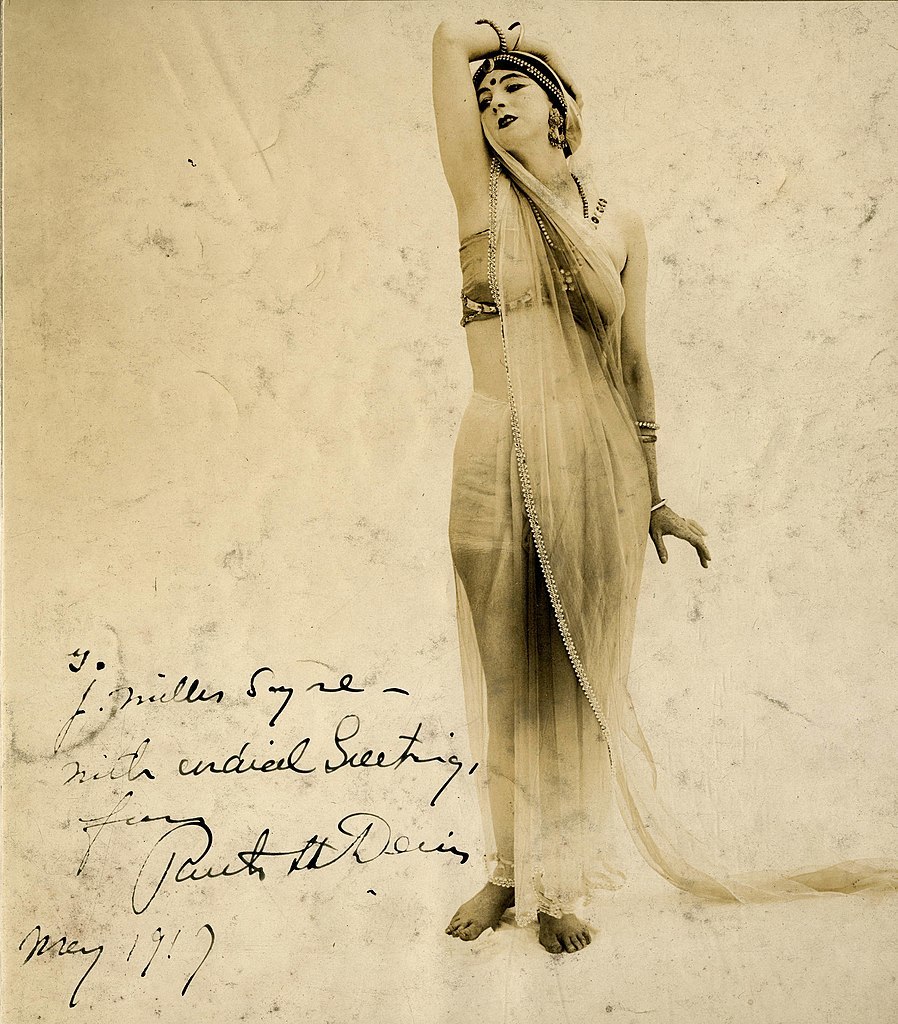 To
J. Willis Sayre —
with cordial Greetings,
from
Ruth St Denis
May 1917